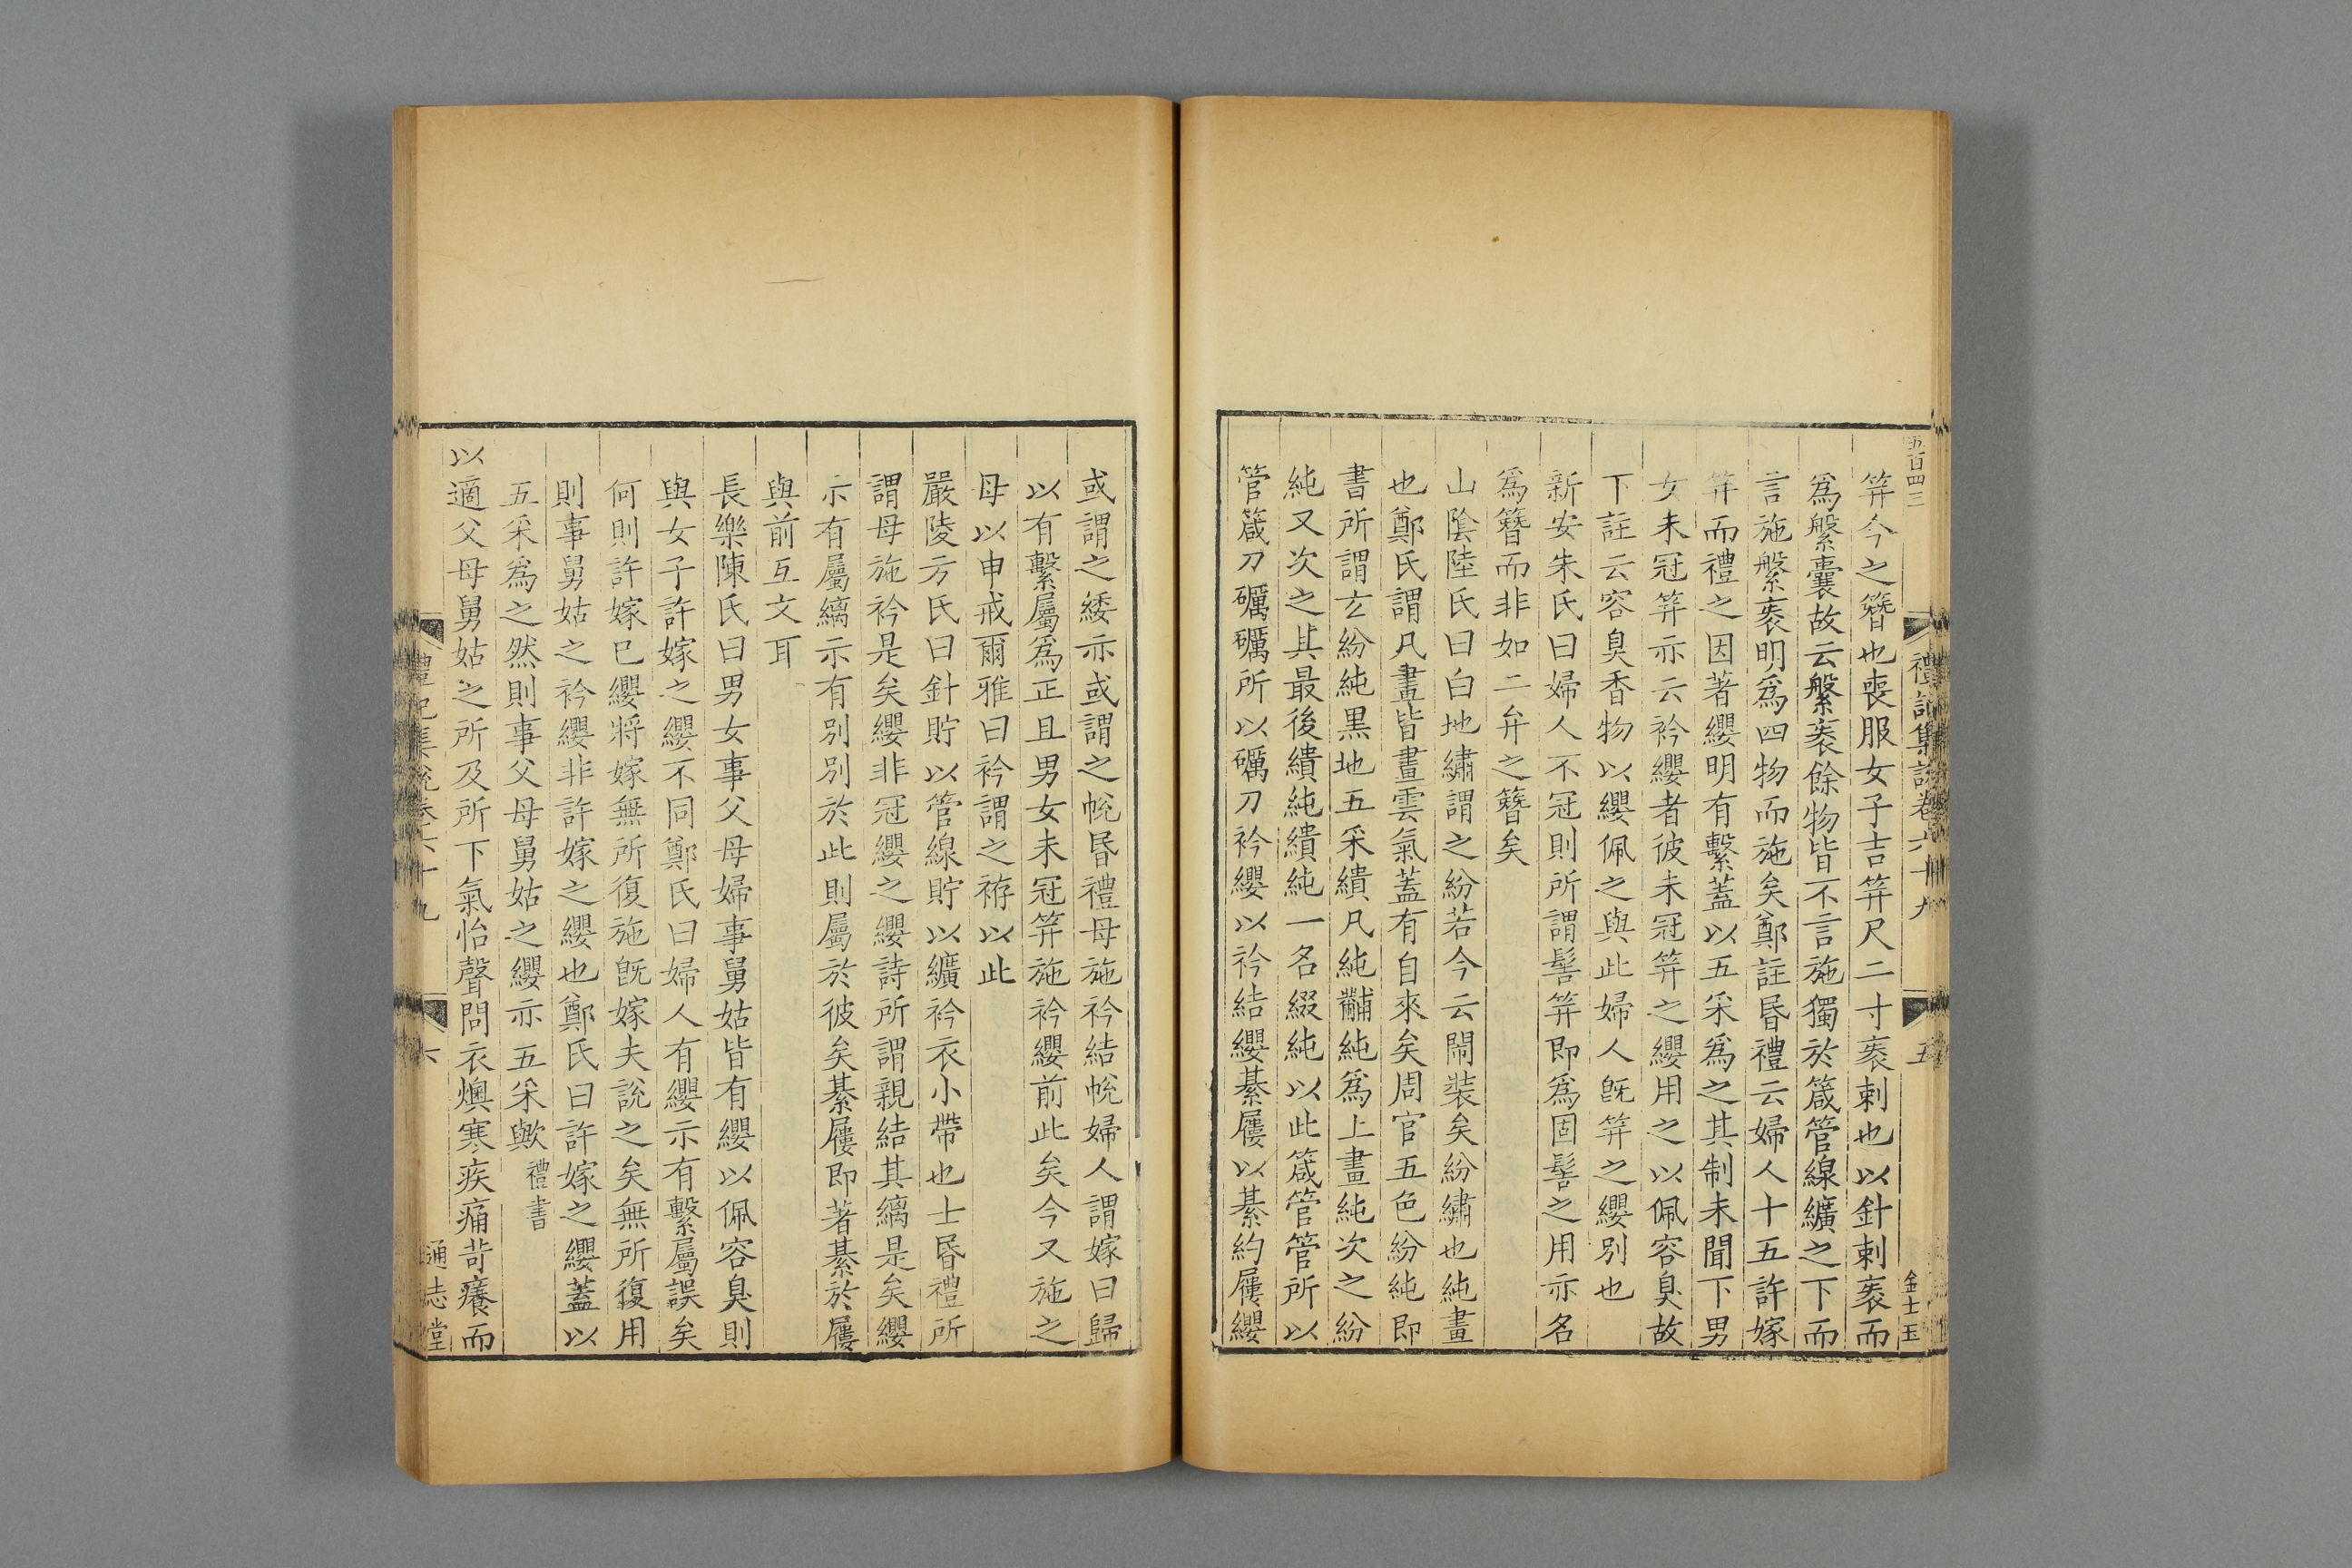 五百四三
禮記集說卷六十九
五
金士玉
笄今之簪也喪服女子吉笄尺二寸袠剌也以針剌袠而
爲槃囊故云槃袠餘物皆不言施獨於箴管線纊之下而
言施槃袠明爲四物而施矣鄭註昏禮云婦人十五許嫁
笄而禮之因著纓明有繫蓋以五采爲之其制未聞下男
女未冠笄亦云衿纓者彼未冠笄之纓用之以佩容臭故
下註云容臭香物以纓佩之與此婦人旣笄之纓別也
新安朱氏曰婦人不冠則所謂髻笄即爲固髻之用亦名
爲簪而非如二弁之簪矣
山陰陸氏曰白地繡謂之紛若今云閙裝矣紛繡也純畫
也鄭氏謂凡畫皆畫雲氣蓋有自來矣周官五色紛純即
書所謂玄紛純黑地五采繢凡純黼純爲上畫純次之紛
純又次之其最後繢純繢純一名綴純以此箴管管所以
管箴刀礪礪所以礪刀衿纓以衿結纓綦屨以綦約屨纓
或謂之緌亦或謂之帨昏禮母施衿結帨婦人謂嫁曰歸
以有繫屬爲正且男女未冠笄施衿纓前此矣今又施之
母以申戒爾雅曰衿謂之袸以此
嚴陵方氏曰針貯以管線貯以纊衿衣小帶也士昏禮所
謂母施衿是矣纓非冠纓之纓詩所謂親結其縭是矣纓
示有屬縭示有別別於此則屬於彼矣綦屨即著綦於屨
與前互文耳
長樂陳氏曰男女事父母婦事舅姑皆有纓以佩容臭則
與女子許嫁之纓不同鄭氏曰婦人有纓示有繫屬誤矣
何則許嫁已纓將嫁無所復施旣嫁夫說之矣無所復用
則事舅姑之衿纓非許嫁之纓也鄭氏曰許嫁之纓蓋以
五采爲之然則事父母舅姑之纓亦五采歟禮書
以適父母舅姑之所及所下氣怡聲問衣燠寒疾痛苛癢而
禮記集說卷六十九
六
通志堂